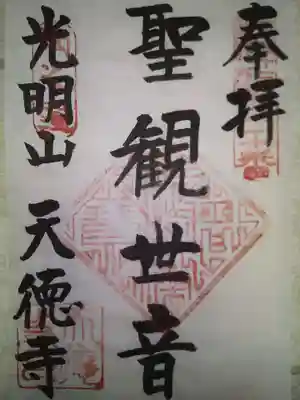 奉拝
聖観世音
光明山 天徳寺